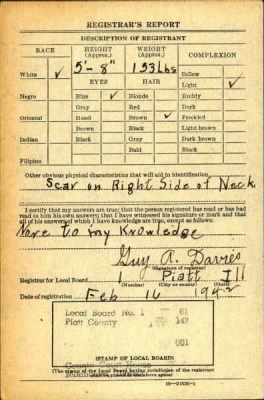 REGISTRAR'S REPORT
DESCRIPTION OF REGISTRANT
RACE HEIGHT (Approx.) WEIGHT (Approx.) COMPLEXION
5-8" 153 Lbs Sallow
White ✓ EYES HAIR Light ✓
Negro Blue ✓ Blonde Ruddy
Gray Red Dark
Oriental Hazel Brown ✓ Freckled
Brown Black Light brown
Indian Black Gray Dark brown
Bald Black
Filipino
Other obvious physical characteristics that will aid in identification
Scar on Right Side of Neck
I certify that my answers are true; that the person registered has read or has had
read to him his own answers; that I have witnessed his signature or mark and that
all of his answers of which I have knowledge are true, except as follows:
None to my Knowledge
Guy A. Davies
(Signature of registrar)
Registrar for Local Board 1 Piatt Ill
(Number) (City or county) (State)
Date of registration Feb 16 1942
Local Board No. 1 81
Piatt County 147
001
(STAMP OF LOCAL BOARD)
(The stamp of the Local Board having jurisdiction of the registrant
shall be placed in the above space)